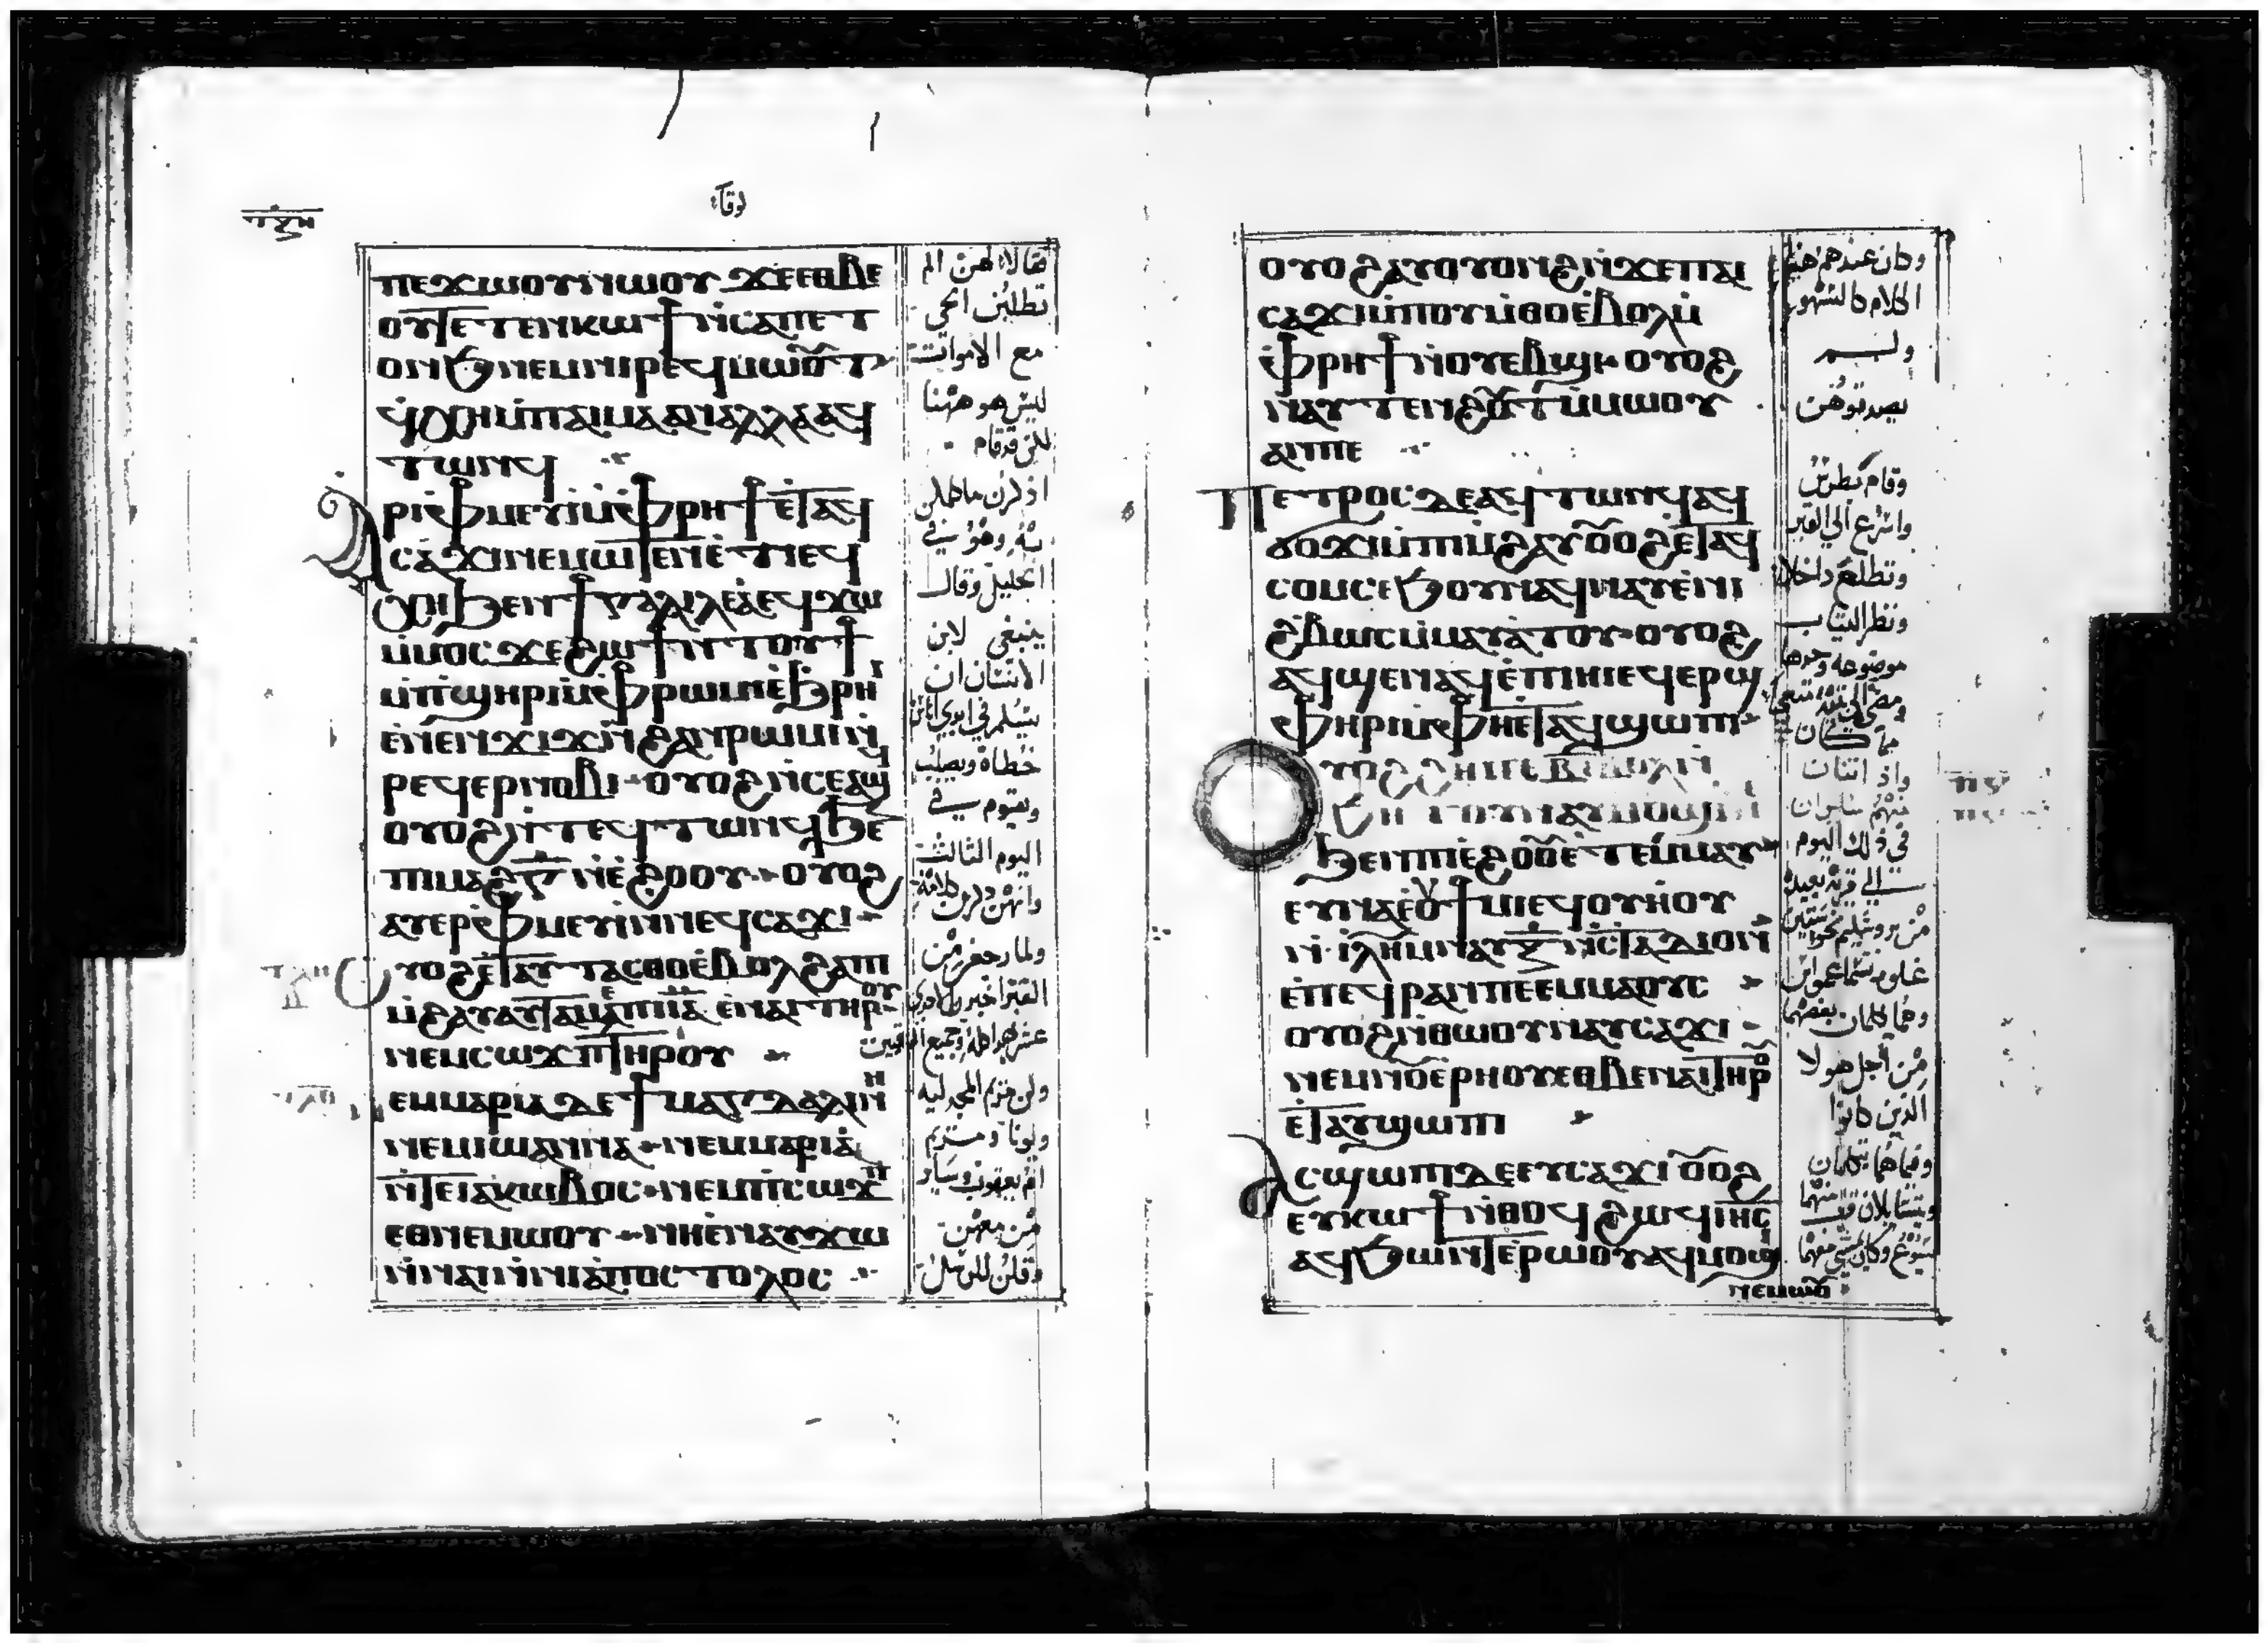 لوقا
ⲡⲉϫⲱⲟⲩ ⲛⲱⲟⲩ ϫⲉ ⲉⲑⲃⲉ
ⲟⲩ ⲧⲉⲧⲉⲛⲕⲱϯ ⲛ̀ⲥⲁ ⲡⲉⲧ
ⲟⲛϧ ⲛⲉⲙ ⲛⲓⲣⲉϥⲙⲱⲟⲩⲧ
ϥⲭⲏ ⲙ̀ⲡⲁⲓⲙⲁ ⲁⲛ ⲁⲗⲗⲁ ⲁϥ
ⲧⲱⲛϥ
ⲁⲣⲓⲫⲙⲉⲩⲓ ⲙ̀ⲫⲣⲏϯ ⲉ̀ⲧⲁϥ
ⲥⲁϫⲓ ⲛⲉⲙⲱⲧⲉⲛ ⲉ̀ⲧⲓ ⲉϥ
ⲭⲏ ϧⲉⲛ ϯⲅⲁⲗⲓⲗⲉⲁ ⲉϥϫⲱ
ⲙ̀ⲙⲟⲥ ϫⲉ ϩⲱϯ ⲛ̀ⲧⲟⲩϯ
ⲙ̀ⲡϣⲏⲣⲓ ⲙ̀ⲫⲣⲱⲙⲓ ⲉ̀ϧⲣⲏⲓ
ⲉ̀ⲛⲉⲛϫⲓϫ ⲛ̀ϩⲁⲛⲣⲱⲙⲓ ⲛ̀
ⲣⲉϥⲉⲣⲛⲟⲃⲓ ⲟⲩⲟϩ ⲛ̀ⲥⲉⲁϣϥ
ⲟⲩⲟϩ ⲛ̀ⲧⲉϥⲧⲱⲛϥ ϧⲉⲛ
ⲡⲓⲙⲁϩⲅ̅ ⲛ̀ⲉ̀ϩⲟⲟⲩ ⲟⲩⲟϩ
ⲁⲩⲉⲣⲫⲙⲉⲩⲓ ⲛ̀ⲛⲉϥⲥⲁϫⲓ
ⲟⲩⲟϩ ⲉ̀ⲧⲁⲩⲧⲁⲥⲑⲟ ⲉ̀ⲃⲟⲗ ϩⲁ ⲡⲓ
ⲙ̀ϩⲁⲩ ⲁⲩⲧⲁⲙⲉ ⲡⲓⲓ̅ⲁ̅ ⲉ̀ⲛⲁⲓ ⲧⲏⲣⲟⲩ
ⲛⲉⲙ ⲥⲱϫⲡ ⲧⲏⲣⲟⲩ
ⲉ ⲙⲁⲣⲓⲁ ⲇⲉ ϯⲙⲁⲅⲇⲁⲗⲓⲛⲏ
ⲛⲉⲙ ⲓⲱⲁⲛⲛⲁ ⲛⲉⲙ ⲙⲁⲣⲓⲁ
ⲛ̀ⲧⲉ ⲓⲁⲕⲱⲃⲟⲥ ⲛⲉⲙ ⲡⲥⲱϫⲡ
ⲉⲑⲛⲉⲙⲱⲟⲩ ⲛⲏ ⲉ̀ⲛⲁⲩϫⲱ
ⲛ̀ⲛⲁⲓ ⲛ̀ⲛⲓⲁⲡⲟⲥⲧⲟⲗⲟⲥ
فقالا لهن لم
تطلبن الحي
مع الاموات
ليس هو ههنا
لكن قد قام
اذكرن ما كلمكن
به وهو في
الجليل وقال
ينبغي لابن
الانسان ان
يسلم في ايدي اناس
خطاة ويصلب
ويقوم في
اليوم الثالث
وانهن ذكرن كلامه
ولما رجعن من
القبر اخبرن الاحدى
عشر بهذا كله وجميع الباقين
وكن مريم المجدلية
ويونا ومريم
ام يعقوب وساير
من معهن
وقلن للرسل
ⲟⲩⲟϩ ⲁⲩⲟⲩⲟⲛϩ ⲛ̀ϫⲉ ⲡⲁⲓ
ⲥⲁϫⲓ ⲙ̀ⲡⲟⲩⲙ̀ⲑⲟ ⲉ̀ⲃⲟⲗ ⲙ̀
ⲫⲣⲏϯ ⲛ̀ⲟⲩⲉⲃϣⲓ ⲟⲩⲟϩ
ⲛⲁⲩⲧⲉⲛϩⲟⲩⲧ ⲙ̀ⲙⲱⲟⲩ
ⲁⲛ ⲡⲉ
ⲡⲉⲧⲣⲟⲥ ⲇⲉ ⲁϥⲧⲱⲛϥ ⲁϥ
ϭⲟϫⲓ ⲙ̀ⲡⲓⲙ̀ϩⲁⲩ ⲟⲩⲟϩ ⲉ̀ⲧⲁϥ
ⲥⲟⲙⲥ ⲉ̀ϧⲟⲩⲛ ⲁϥⲛⲁⲩ ⲉ̀ⲛⲓ
ϩⲃⲱⲥ ⲙ̀ⲙⲁⲩⲁⲧⲟⲩ ⲟⲩⲟϩ
ⲁϥϣⲉⲛⲁϥ ⲉ̀ⲡⲉϥⲏⲓ ⲉϥⲉⲣϣ
ⲫⲏⲣⲓ ⲙ̀ⲫⲏ ⲉ̀ⲧⲁϥϣⲱⲡⲓ
ⲟⲩⲟϩ ϩⲏⲡⲡⲉ ⲃ̅ ⲉ̀ⲃⲟⲗ ⲛ̀
ϧⲏⲧⲟⲩ ⲛⲁⲩⲙⲟϣⲓ
ϧⲉⲛ ⲡⲓⲉ̀ϩⲟⲟⲩ ⲉ̀ⲧⲉⲙ̀ⲙⲁⲩ
ⲉⲩⲛⲁ ⲉ̀ⲟⲩϯⲙⲓ ⲉϥⲟⲩⲏⲟⲩ
ⲛ̀ⲓ̅ⲗ̅ⲏ̅ⲙ̅ ⲛⲁⲩ ⲝ̅ ⲛ̀ⲥⲧⲁⲇⲓⲟⲛ
ⲉ̀ⲡⲉϥⲣⲁⲛ ⲡⲉ ⲉⲙⲙⲁⲟⲩⲥ
ⲟⲩⲟϩ ⲛ̀ⲑⲱⲟⲩ ⲛⲁⲩⲥⲁϫⲓ
ⲛⲉⲙ ⲛⲟⲩⲉⲣⲏⲟⲩ ⲉⲑⲃⲉ ⲛⲁⲓ ⲧⲏⲣⲟⲩ
ⲉ̀ⲧⲁⲩϣⲱⲡⲓ
ⲁⲥϣⲱⲡⲓ ⲇⲉ ⲉⲩⲥⲁϫⲓ ⲟⲩⲟϩ
ⲉⲩⲕⲱϯ ⲛ̀ⲑⲟϥ ϩⲱϥ ⲓⲏⲥ
ⲁϥϧⲱⲛⲧ ⲉ̀ⲣⲱⲟⲩ ⲁϥⲙⲟϣⲓ
ⲛⲉⲙⲱⲟⲩ
وكان عندهم هذا
الكلام كالسهو
ولم
يصدقوهن
وقام بطرس
واسرع الي القبر
وتطلع داخلا
ونظر الثياب
موضوعة وحدها
ومضى الى بيته متعجبا
مما كان
واذ اثنان
منهم سايران
في ذلك اليوم
الي قرية بعيدة
من يروشليم نحو ستين
غلوة تسما عمواس
وهما يكلمان بعضهما
من اجل هولا
الذين كانوا
وفيما هما يتكلمان
ويتسايلان قرب منهما
يسوع وكان يمشي معهما